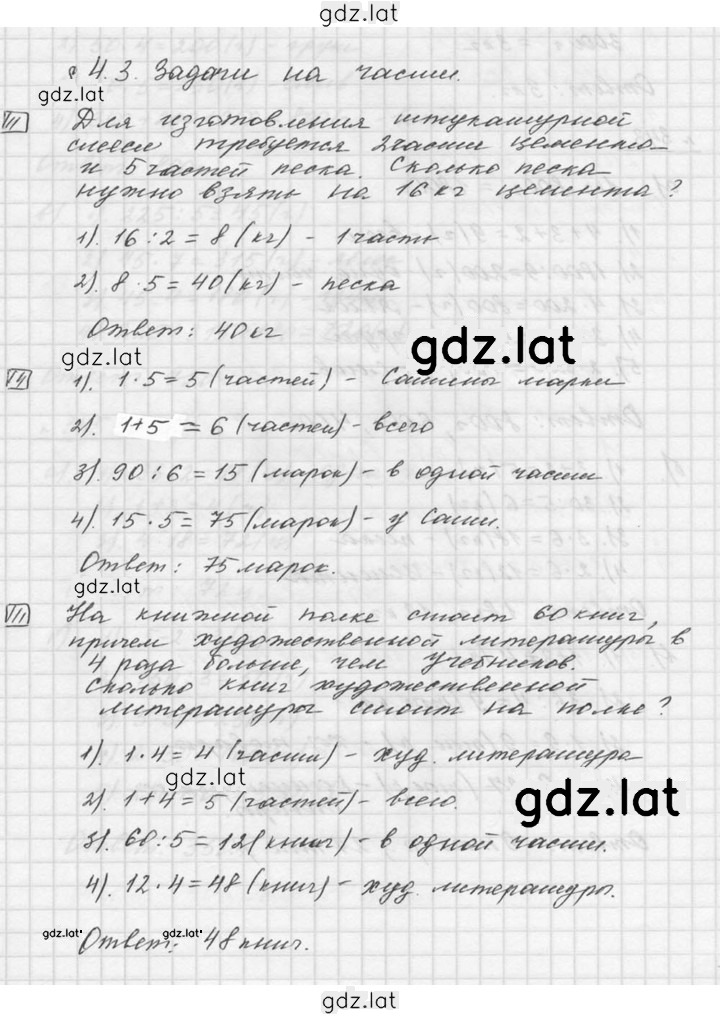 gdz.lat
§ 4.3. Задачи на части.
gdz.lat
Для изготовления штукатурной
смеси требуется 2 части цемента
и 5 частей песка. Сколько песка
нужно взять на 16 кг цемента?
1). 16 : 2 = 8 (кг) - 1 часть
2). 8 · 5 = 40 (кг) - песка
Ответ: 40 кг
gdz.lat
gdz.lat
1). 1 · 5 = 5 (частей) - Сашины марки
2). 1+5 = 6 (частей) - всего
3). 90 : 6 = 15 (марок) - в одной части
4). 15 · 5 = 75 (марок) - у Саши.
Ответ: 75 марок.
gdz.lat
На книжной полке стоит 60 книг,
причем художественной литературы в
4 раза больше, чем учебников.
Сколько книг художественной
литературы стоит на полке?
1). 1 · 4 = 4 (части) - худ. литература
gdz.lat
2). 1 + 4 = 5 (частей) - всего.
gdz.lat
3). 60 : 5 = 12 (книг) - в одной части.
4). 12 · 4 = 48 (книг) - худ. литературы.
gdz.lat gdz.lat
Ответ: 48 книг.
gdz.lat